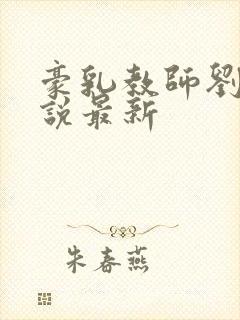 豪乳教師劉
說最新
朱春燕